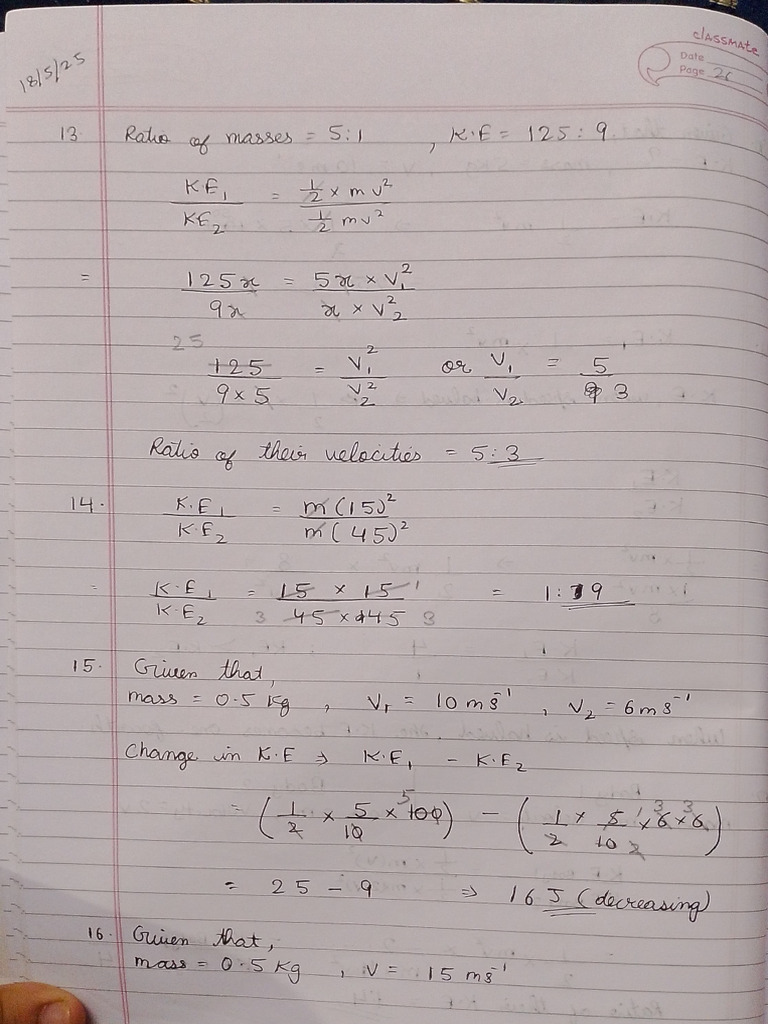 classmate
Date
Page 26
18/5/25
13. Ratio of masses = 5:1 , K.E = 125 : 9
KE₁/KE₂ = (½ × mv²)/(½ mv²)
= 125x/9x = (5x × V₁²)/(x × V₂²)
25
125/(9×5) = V₁²/V₂² or V₁/V₂ = 5/3
Ratio of their velocities = 5:3
14. K.E₁/K.E₂ = m(15)²/m(45)²
= K.E₁/K.E₂ = (15 × 15 1)/(3 45 × 45 3) = 1:9
15. Given that,
mass = 0.5 Kg , V₁ = 10 ms⁻¹ , V₂ = 6 ms⁻¹
Change in K.E ⇒ K.E₁ - K.E₂
= (1/2 × 5/10 × 100 5) - (1/2 × 5 1/10 2 × 6 3 × 6 3)
= 25 - 9 ⇒ 16 J (decreasing)
16. Given that,
mass = 0.5 Kg , V = 15 ms⁻¹